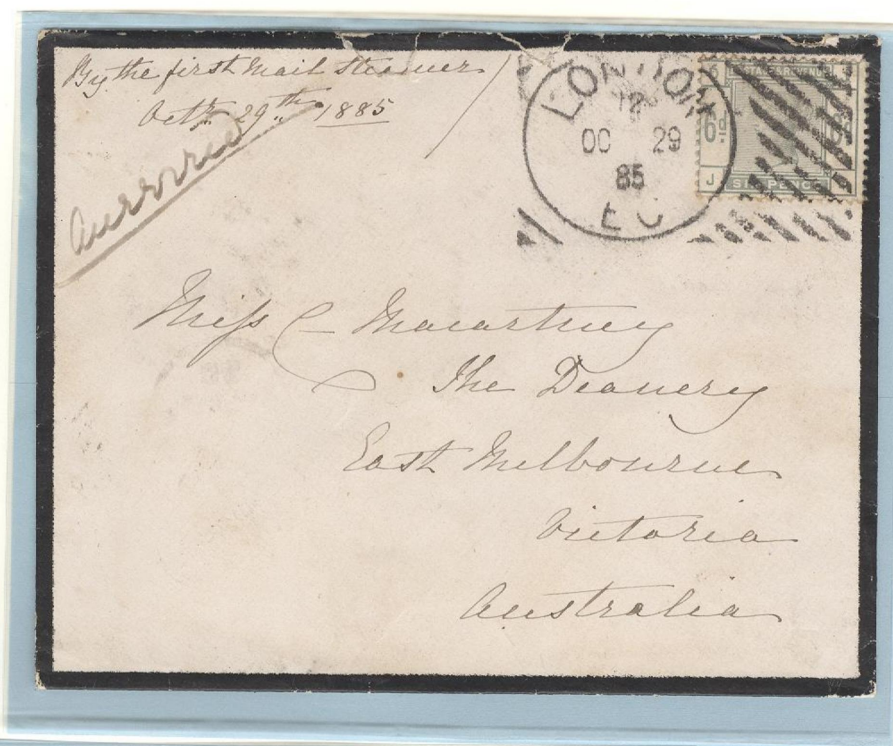 By the first Mail Steamer
Octr. 29th. 1885
Answered
LONDON
12
OC 29
85
E C
6d.
J
SIXPENCE
Miss C Macartney
The Deanery
East Melbourne
Victoria
Australia